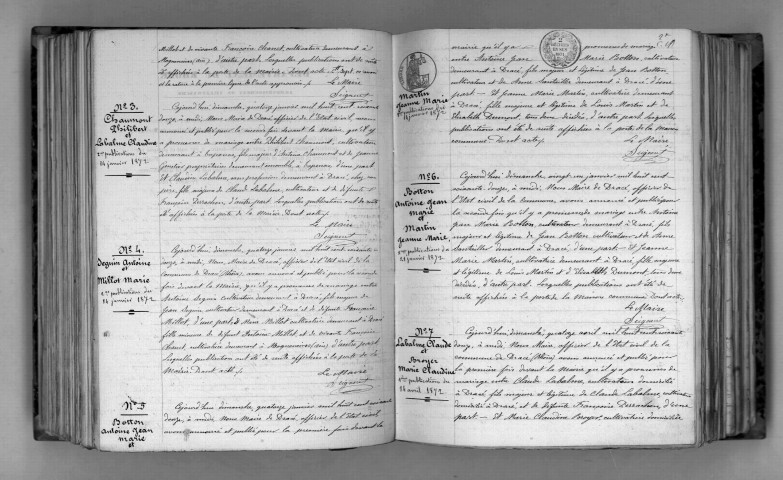 Millot et de vivante Françoise Chanut, cultivatrice demeurant à
d'autre part, lesquelles publications ont de suite
été affichées à la porte de la mairie, dont acte.
Le Maire
Signout
N° 3.
Chaumont
Philibert
et
Labalme Claudine
publication du
14 janvier 1872
Aujourd'hui dimanche, quatorze janvier mil huit cent soixante
douze, à midi, Nous Maire de Dracé, officier de l'Etat civil, avons
annoncé et publié pour la seconde fois devant la mairie, qu'il y
a promesse de mariage entre Philibert Chaumont, cultivateur
demeurant à
et Claudine Labalme, sans profession demeurant à Dracé, chez son
père, fille majeure de Claude Labalme, cultivateur et de défunte
Françoise Perrachon, d'autre part. Lesquelles publications ont été de suite
affichées à la porte de la Mairie. Dont acte.
Le Maire
Signout
N° 4.
Seguin Antoine
et
Millot Marie
1ère publication du
14 janvier 1872.
Aujourd'hui dimanche, quatorze janvier mil huit cent soixante
douze, à midi, Nous Maire de Dracé, officier de l'état civil de la
commune de Dracé (Rhône), avons annoncé et publié pour la
fois devant la Mairie, qu'il y a promesse de mariage entre
Antoine Seguin cultivateur demeurant à Dracé, fils majeur de
Jean Seguin cultivateur demeurant à Dracé et de défunte Françoise
Millot, d'une part & Marie Millot cultivatrice demeurant à Dracé
fille mineure de défunt Antoine Millot et de vivante Françoise
Chanut, cultivatrice demeurant à d'autre part.
Lesquelles publications ont été de suite affichées à la porte de la
Mairie. Dont acte.
Le Maire
Signout
N° 5
Botton
Antoine Jean
Marie
et
Aujourd'hui dimanche, quatorze janvier mil huit cent soixante
douze, à midi, Nous Maire de Dracé, officier de l'Etat civil,
avons annoncé et publié pour la première fois devant la
Martin
Jeanne Marie
publication du
14 janvier 1872
mairie qu'il y a promesse de mariage
entre Antoine Jean Marie Botton, cultivateur
demeurant à Dracé, fils majeur et légitime de Jean Botton
cultivateur et de Anne demeurant à Dracé, d'une
part — Et Jeanne Marie Martin, cultivatrice demeurant
à Dracé, fille majeure et légitime de Louis Martin et de
Elisabeth Dumont, tous deux décédés, d'autre part. Lesquelles
publications ont été de suite affichées à la porte de la maison
commune. Dont acte.
Le Maire
Signout
N° 6.
Botton
Antoine Jean
Marie
et
Martin
Jeanne Marie.
publication du
21 janvier 1872
Aujourd'hui dimanche vingt un janvier mil huit cent
soixante douze, à midi. Nous Maire de Dracé officier de
l'Etat civil de la commune, avons annoncé et publié pour
la seconde fois qu'il y a promesse de mariage entre Antoine
Jean Marie Botton, cultivateur demeurant à Dracé, fils
majeur et légitime de Jean Botton cultivateur et de Anne
demeurant à Dracé, d'une part — Et Jeanne
Marie Martin, cultivatrice demeurant à Dracé, fille majeure
et légitime de Louis Martin et d'Elisabeth Dumont, tous deux
décédés, d'autre part. Lesquelles publications ont été de
suite affichées à la porte de la Maison commune dont acte.
Le Maire
Signout
N° 7
Labalme Claude
et
Broyer
Marie Claudine
publication du
14 avril 1872
Aujourd'hui, dimanche, quatorze avril mil huit cent soixante
douze, à midi, Nous Maire, officier de l'Etat civil de la
commune de Dracé (Rhône) avons annoncé et publié pour
la première fois devant la Mairie qu'il y a promesse de
mariage entre Claude Labalme, cultivateur domicilié
à Dracé fils majeur et légitime de Claude Labalme, cultivateur
domicilié à Dracé et de défunte Françoise Perrachon, d'une
part — Et Marie Claudine Broyer, cultivatrice domiciliée